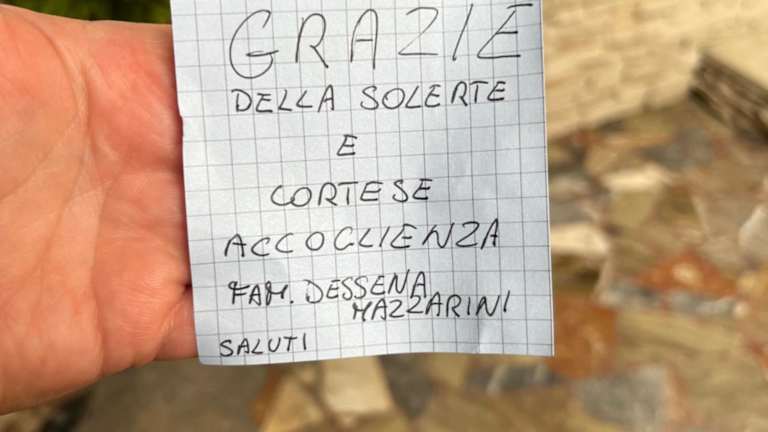 GRAZIE
DELLA SOLERTE
E
CORTESE
ACCOGLIENZA
FAM. DESSENA
MAZZARINI
SALUTI